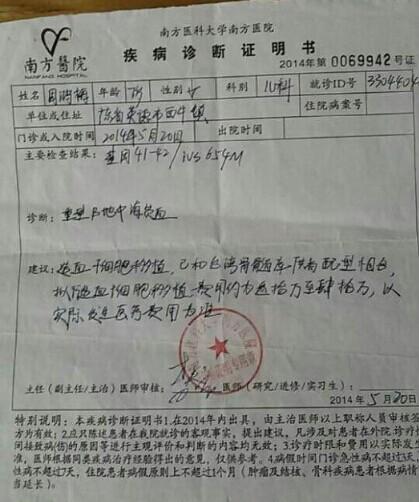 南方医科大学南方医院
南方醫院
NANFANG HOSPITAL
疾病诊断证明书
2014年第0069942号证
姓名 年龄 性别 女 科别 儿科 就诊ID号
单位或住址 住院病案号
门诊或入院时间 2014年5月20日 出院时间
主要检查结果: 基因41-42/IVS654M
诊断: 重型β地中海贫血
建议: 造血干细胞移植,已和台湾骨髓库供者配型相合,
拟行造血干细胞移植,费用约为叁拾万至肆拾万,以
实际发生医药费用为准
主任(副主任/主治)医师审核: 医师(研究/进修/实习生):
2014年5月20日
特别说明:本疾病诊断证明书1.在2014年内出具,由主治医师以上职称人员审核签
方为有效;2.应只陈述患者在我院就诊的客观事实,提出建议,凡涉及对患者在外院诊疗
间接致病(伤)的原因等进行主观评价和判断的内容均无效;3.诊疗时间和费用以实际发生
准,医师根据同类疾病治疗经验得出的意见,仅供参考。4.病假时间门诊急性病不超过3天
性病不超过7天,住院患者病假原则上不超过1个月(肿瘤及结核、骨科疾病患者根据病情
当延长)。